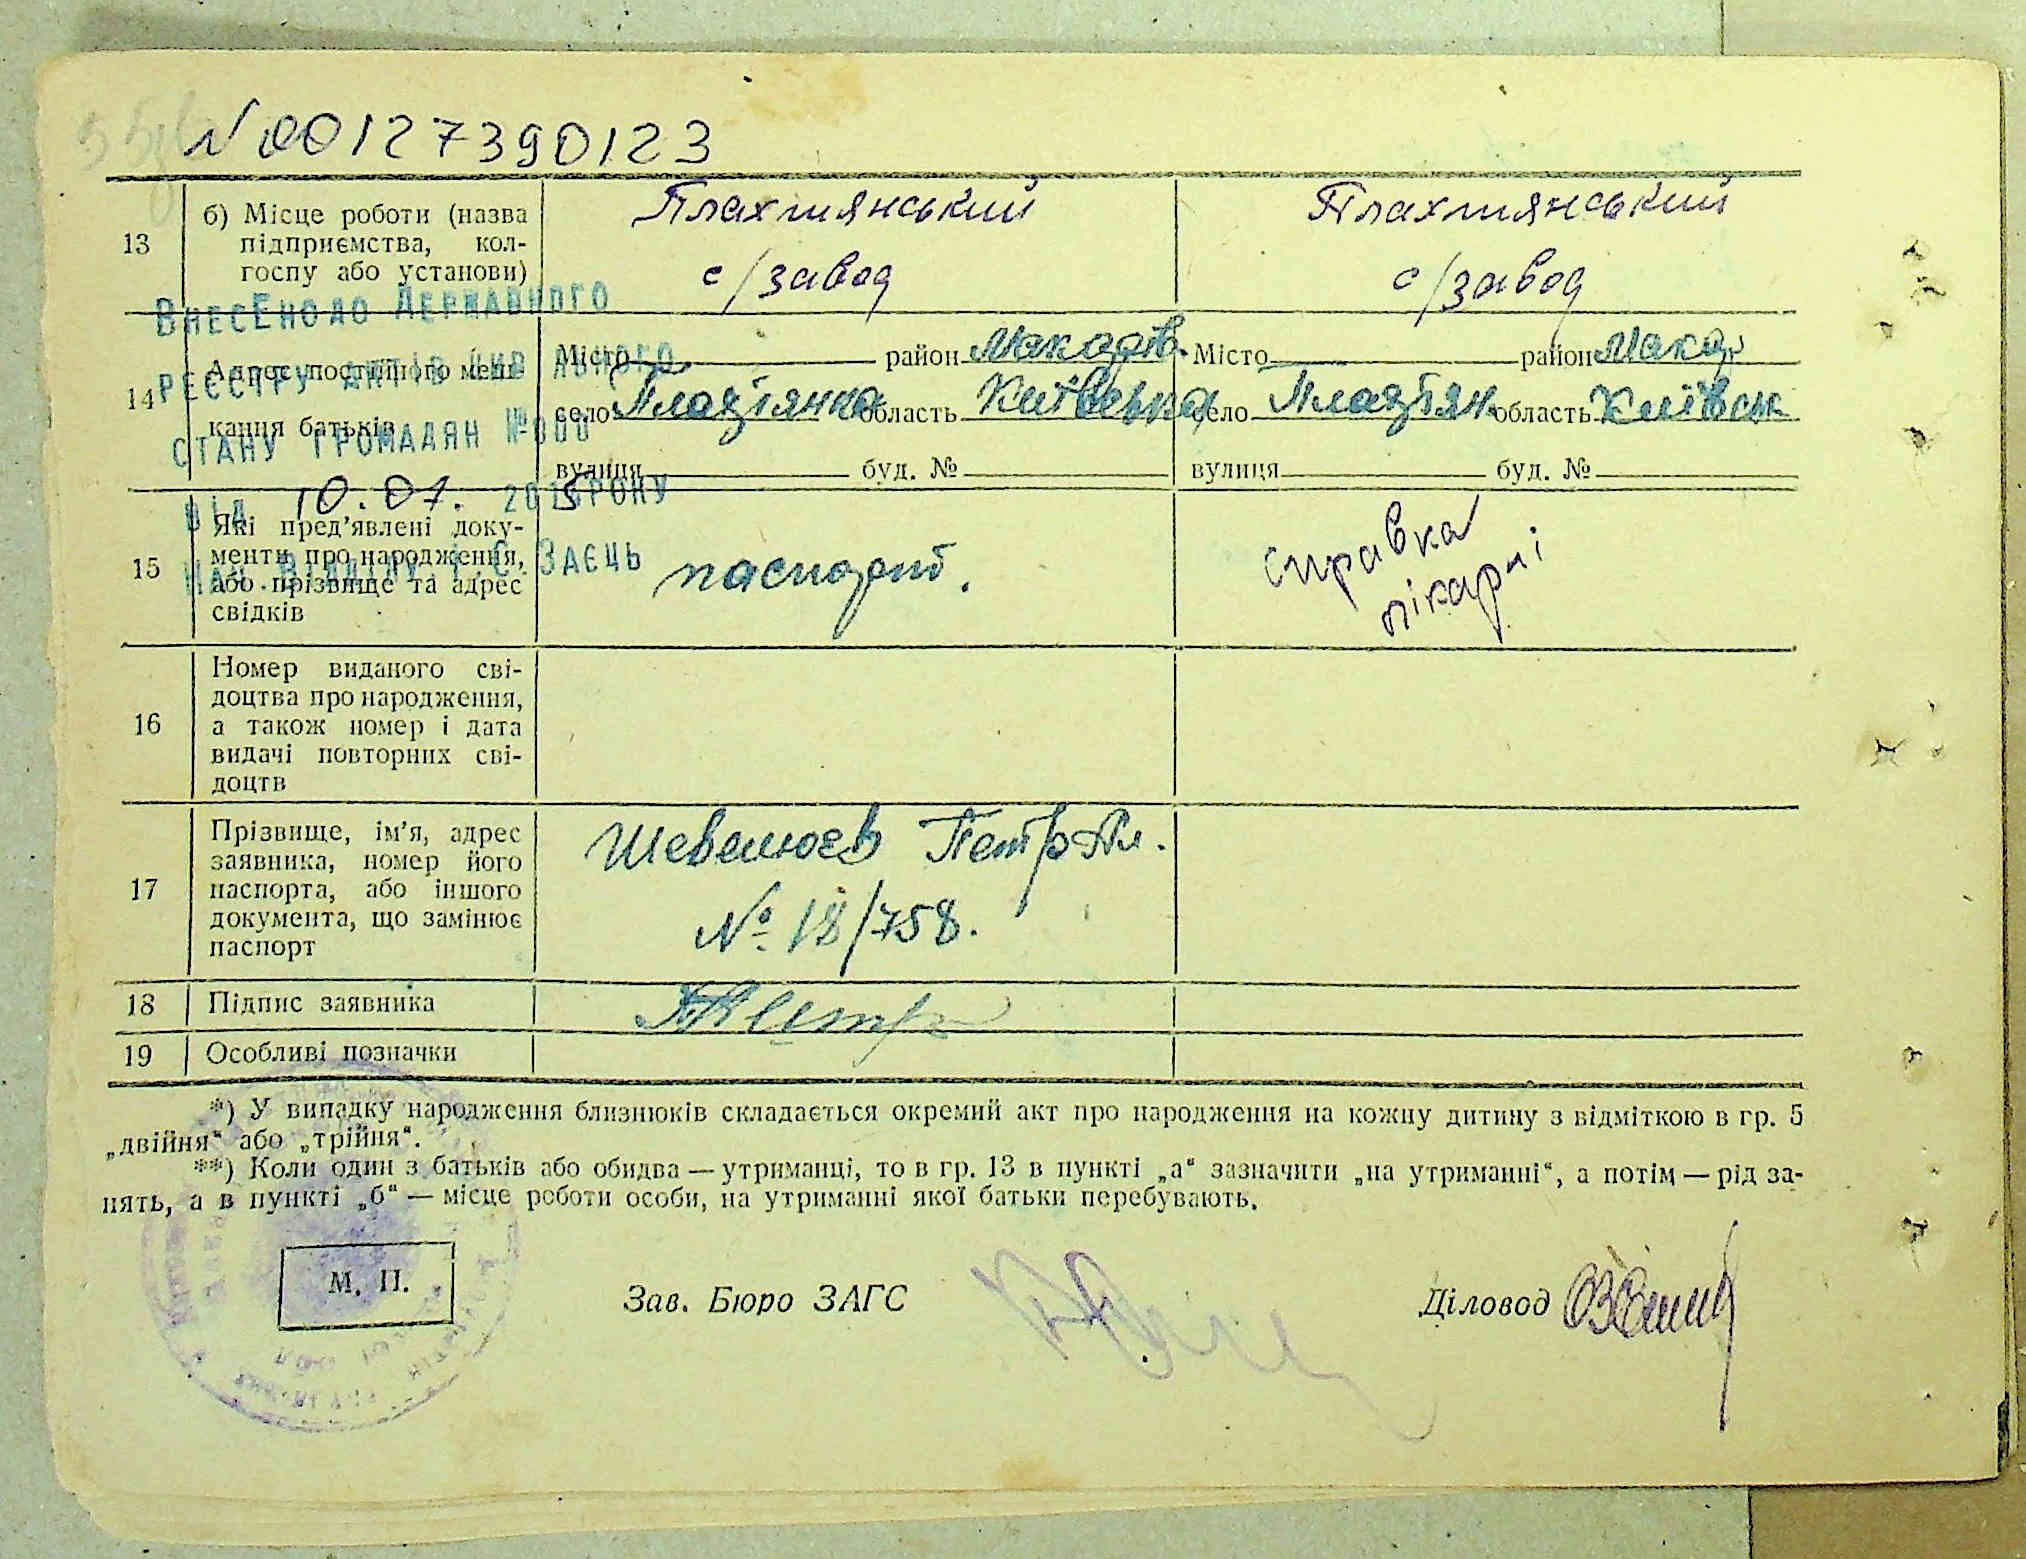 N 00127390123
13
б) Місце роботи (назва
підприємства, кол-
госпу або установи)
Плахтянський
с/завод
Плахтянський
с/завод
Внесено до Державного
реєстру актів цивільного
стану громадян №000
від 10.07. 2015 року
Нач. відділу І.С. Заєць
14
Адрес постійного меш-
кання батьків
Місто район Макарів.
село Плахтянка область Київська
вулиця буд. №
Місто район Макар
село Плахтян область Київськ
вулиця буд. №
15
Які пред’явлені доку-
менти про народження,
або прізвище та адрес
свідків
паспорт.
справка
лікарні
16
Номер виданого сві-
доцтва про народження,
а також номер і дата
видачі повторних сві-
доцтв
17
Прізвище, ім’я, адрес
заявника, номер його
паспорта, або іншого
документа, що замінює
паспорт
Петр Пл.
№ 18/758.
18
Підпис заявника
19
Особливі позначки
*) У випадку народження близнюків складається окремий акт про народження на кожну дитину з відміткою в гр. 5
„двійня“ або „трійня“.
**) Коли один з батьків або обидва — утриманці, то в гр. 13 в пункті „а“ зазначити „на утриманні“, а потім — рід за-
нять, а в пункті „б“ — місце роботи особи, на утриманні якої батьки перебувають.
М. П.
Зав. Бюро ЗАГС
Діловод